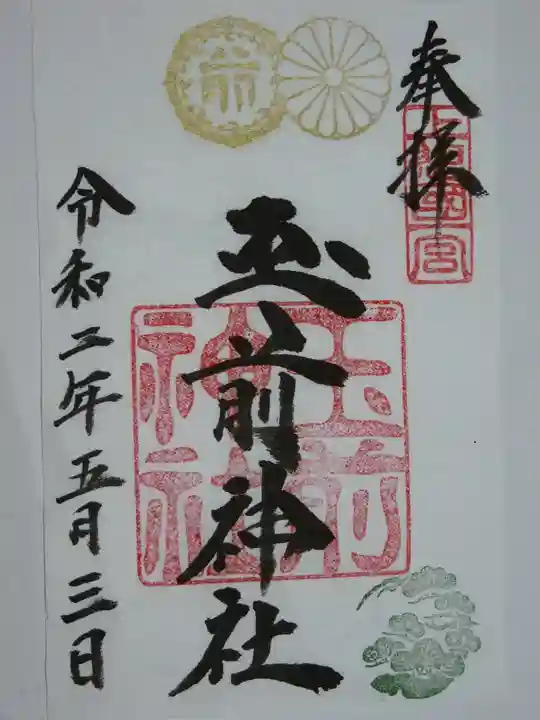 奉拝
上総国一之宮
玉前神社
玉前神社
令和二年五月三日